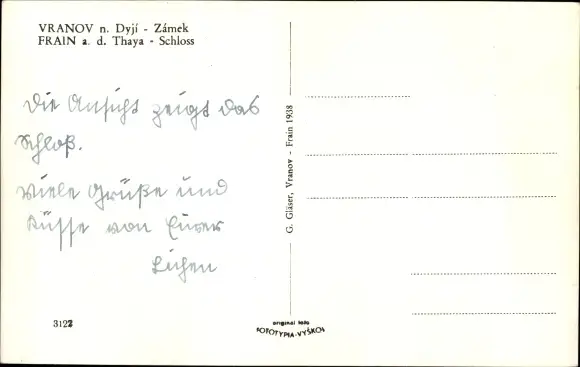 VRANOV n. Dyjí - Zámek
FRAIN a. d. Thaya - Schloss
Die Ansicht zeigt das
Schloß.
Viele Grüße und
Küsse von Eurer
G. Gläser, Vranov - Frain 1938
3122
original foto
FOTOTYPIA-VYŠKOV